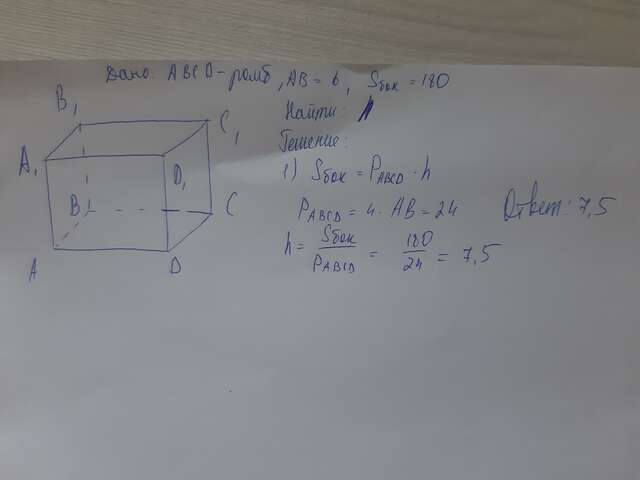 Дано: ABCD - ромб, AB = 6, Sбок = 180
Найти: h
Решение:
1) Sбок = PABCD · h
PABCD = 4 · AB = 24
h = Sбок / PABCD = 180 / 24 = 7,5
Ответ: 7,5
B₁
C₁
A₁
D₁
B
C
A
D